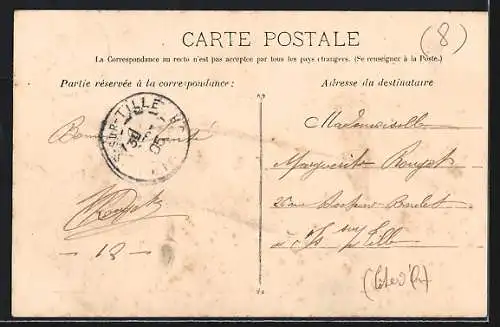 (8)
CARTE POSTALE
La Correspondance au recto n'est pas acceptée par tous les pays étrangers. (Se renseigner à la Poste.)
Partie réservée à la correspondance :
Adresse du destinataire
SUR-TILLE
05
Mademoiselle
Marguerite Rouget
à Is sur Tille
— 12 —
(Côte d'Or)